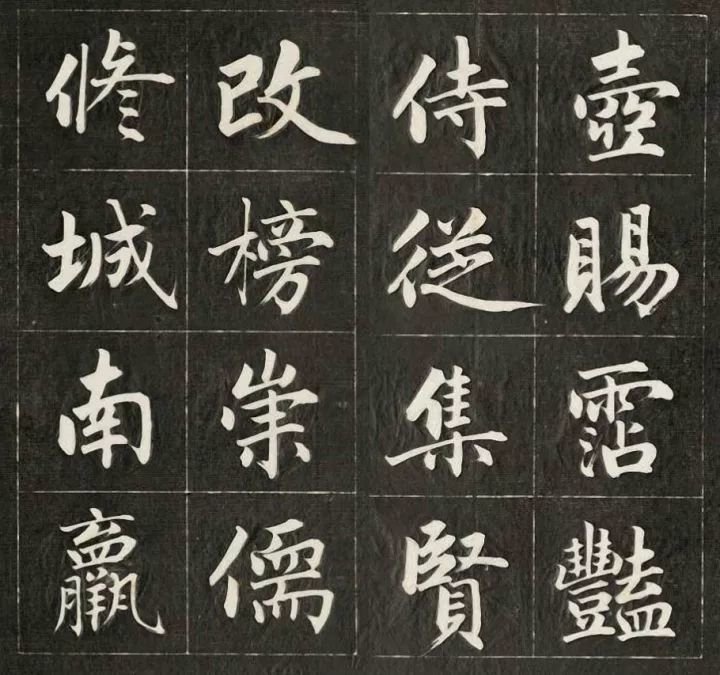 壺賜霑豔
侍從集賢
改榜崇儒
修城南羸